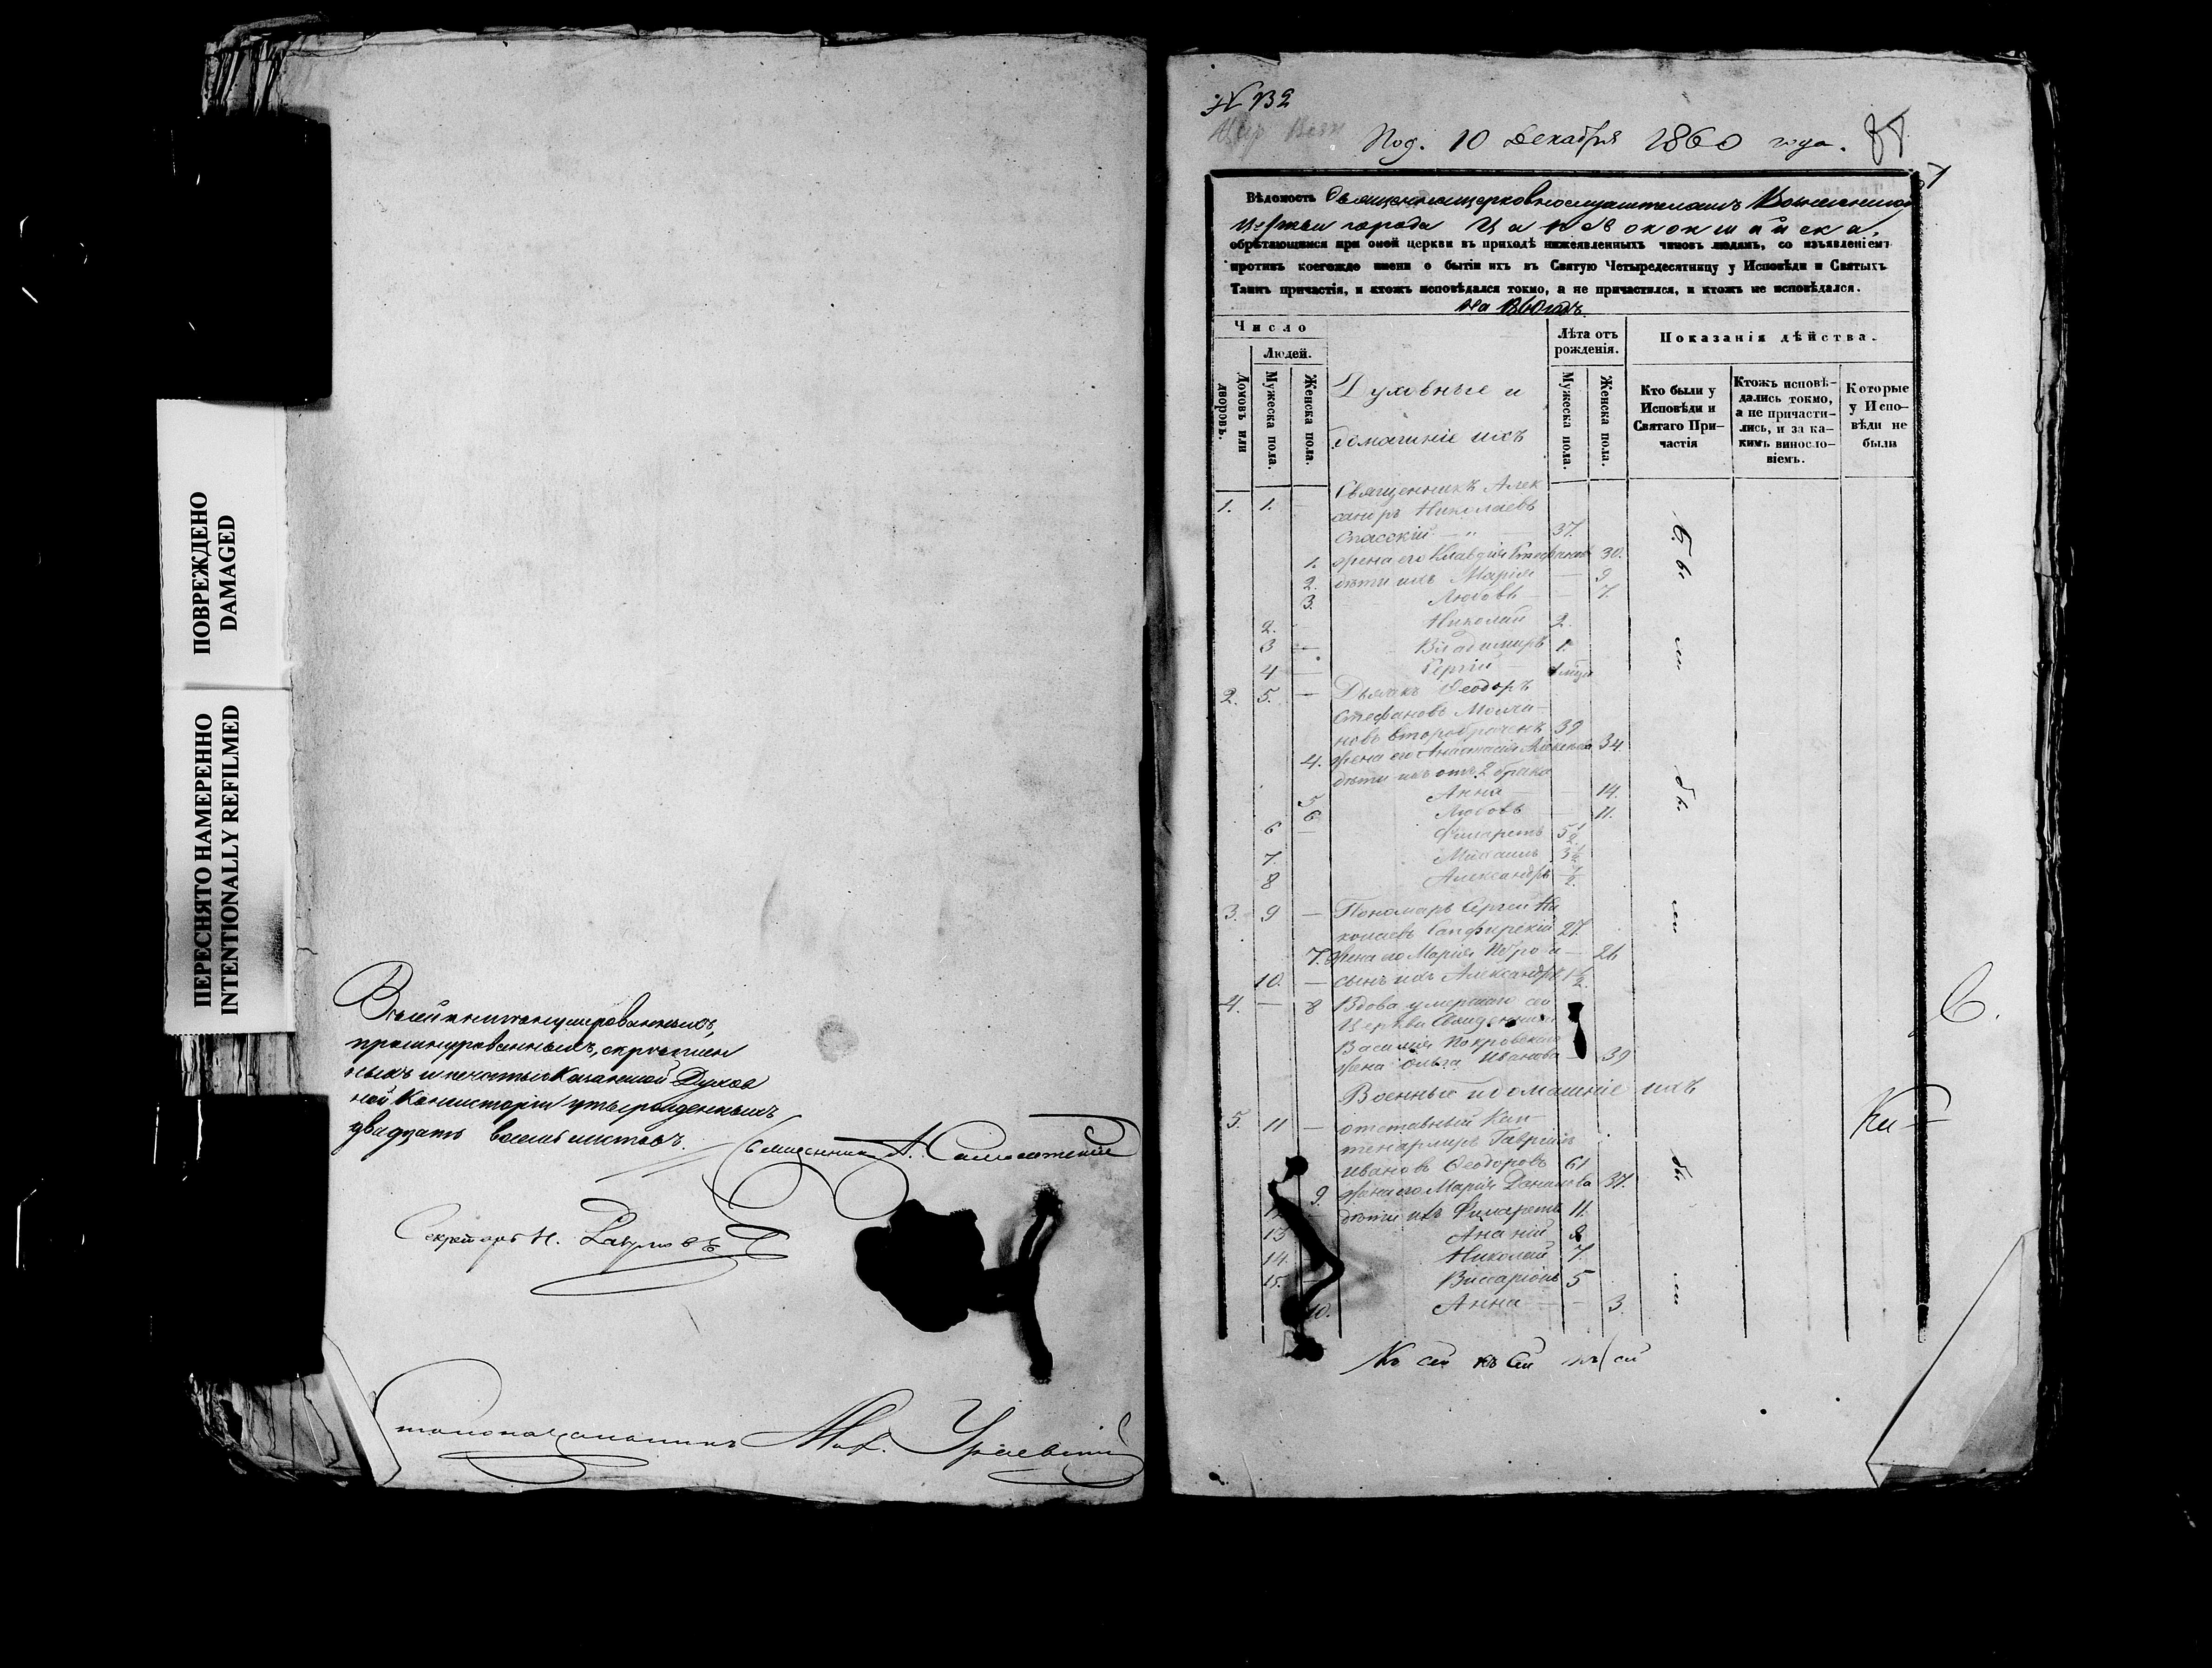 ПОВРЕЖДЕНО
DAMAGED
ПЕРЕСНЯТО НАМЕРЕННО
INTENTIONALLY REFILMED
В сей книге нумерованныхъ,
прошнурованныхъ, скреплен
ныхъ и печатью Казанской Духов
ной Консисторіи утвержденныхъ
двадцать восемь листовъ.
Священникъ А.
Секретарь Н.
Столоначальникъ
N 132
Под. 10 Декабря 1860 года.
Вѣдомость Священноцерковнослужителямъ Вознесенской
Церкви города Царевококшайска,
обрѣтающимся при оной церкви въ приходѣ нижеявленныхъ чиновъ людямъ, со изъявленіемъ
противъ коегождо имени о бытіи ихъ въ Святую Четыредесятницу у Исповѣди и Святыхъ
Таинъ причастія, и ктожъ исповѣдался токмо, а не причастился, и ктожъ не исповѣдался.
на 1860 годъ.
Число
Людей.
Домовъ или дворовъ.
Мужеска пола.
Женска пола.
Духовные и
домашніе ихъ
Лѣта отъ рожденія.
Мужеска пола.
Женска пола.
Показанія дѣйства.
Кто были у Исповѣди и Святаго Причастія
Ктожъ исповѣдались токмо, а не причастились, и за какимъ винословіемъ.
Которые у Исповѣди не были
Священникъ Алек
1. 1. — сандръ Николаевъ
Спасскій — " — 37.
1. жена его Клавдія Стефанова 30.
2. дѣти ихъ Марія — 9
3. Любовь — 7.
2. Николай 2.
3 — Владимиръ 1.
4 — Сергій
2. 5. — Дьячекъ Ѳеодоръ
Стефановъ Молча-
новъ второбраченъ 39
4. жена его Анастасія 34.
дѣти ихъ отъ 2 брака
5 Анна — 14.
6 Любовь — 11.
6 — Филаретъ 5 1/2.
7. Михаилъ 3 1/2
8 Александръ 1/2.
3. 9 — Пономарь Сергей Ни
колаевъ Сапфирскій 27.
7. жена его Марія Петрова — 26
10. — сынъ ихъ Александръ 1 1/2.
4. — 8 Вдова умершаго сей
Церкви Священника
Василія Покровскаго
жена Ольга Иванова — 39
Военные и домашніе ихъ
5. 11 — отставный Кап-
тенармусъ Гавріилъ
Ивановъ Ѳеодоровъ 61
9. жена его Марія Данилова 37.
дѣти ихъ Филаретъ 11.
13 Ананій 8
14. Николай 7.
15. Виссаріонъ 5
10. Анна — 3.
Къ сей къ сей къ сей